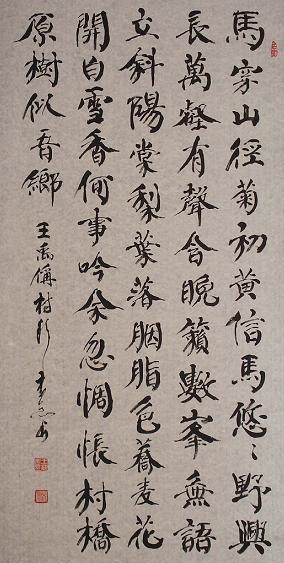 馬穿山徑菊初黃信馬悠〻野興
長萬壑有聲含晚籟數峯無語
立斜陽棠梨葉落胭脂色蕎麦花
開白雪香何事吟余忽惆悵村橋
原樹似吾鄉 王禹偁村行